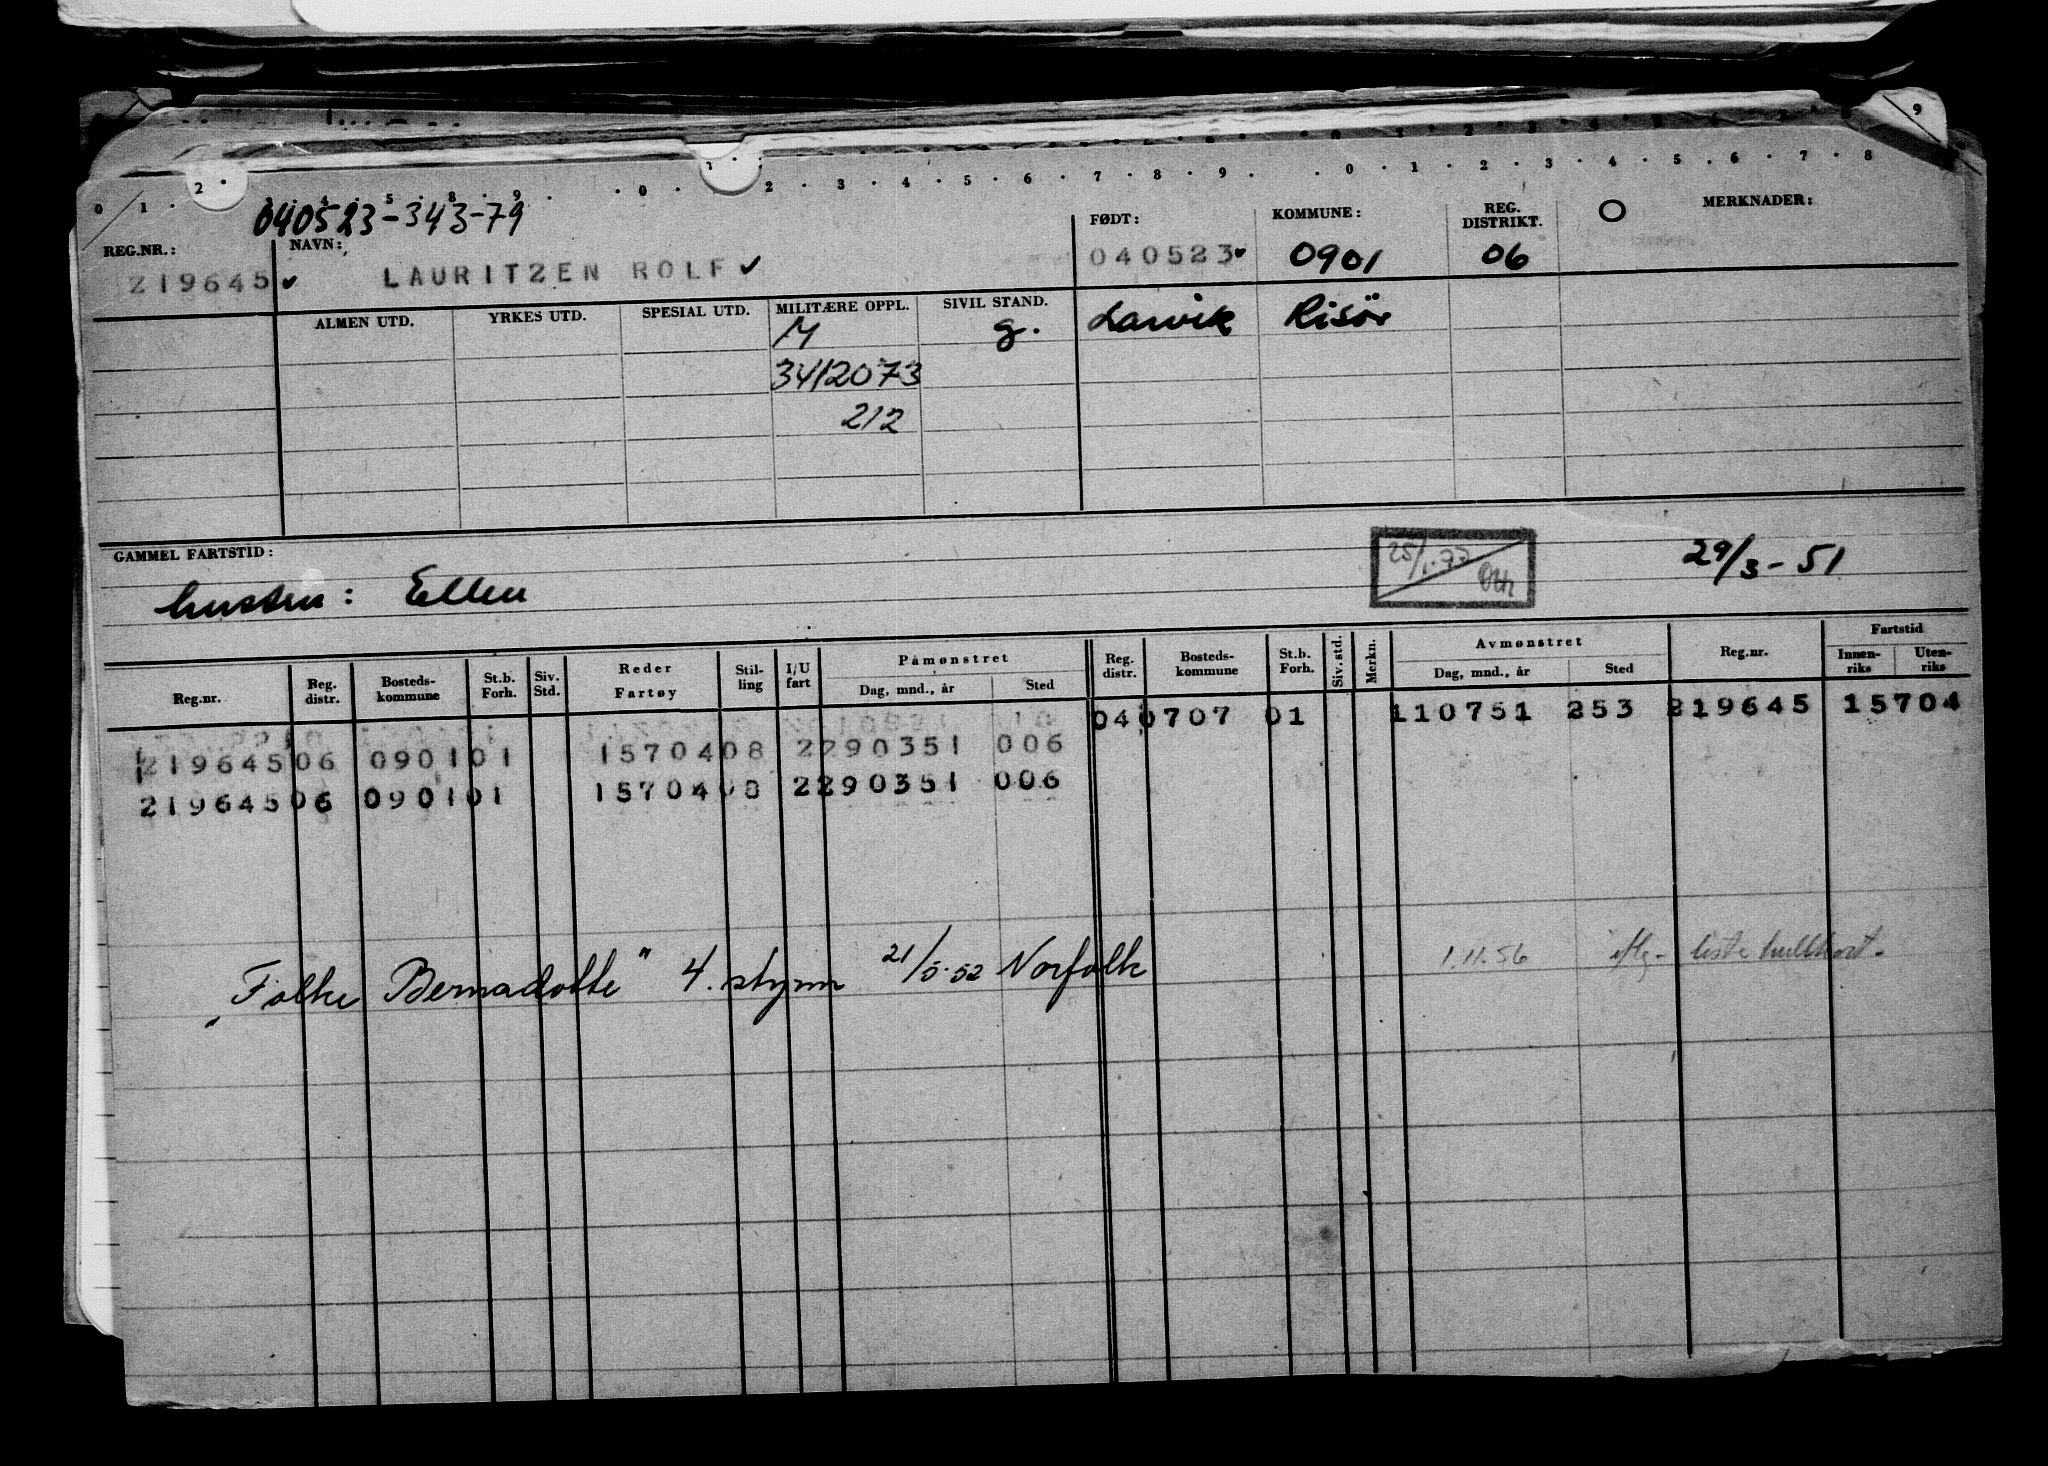 0 1 2 3 4 5 6 7 8 9
0 1 . 2 . 5 8 9 . 0 . 1 . 2 . 3 . 4 . 5 . 6 . 7 . 8 . 9 . 0 . 1 . 2 . 3 . 4 . 5 . 6 . 7 . 8 9
040523-343-79
REG.NR.: NAVN: FØDT: KOMMUNE: REG. DISTRIKT. O MERKNADER:
219645 ✓ LAURITZEN ROLF ✓ 040523 ✓ 0901 06
ALMEN UTD. YRKES UTD. SPESIAL UTD. MILITÆRE OPPL. SIVIL STAND.
M g. Larvik Risör
3412073
212
GAMMEL FARTSTID:
25/1-77 29/3-51
hustru: Ellen
Påmønstret Avmønstret Fartstid
Reg.nr. Reg. distr. Bosteds-kommune St.b. Forh. Siv. Std. Reder Fartøy Stil-ling I/U fart Dag, mnd., år Sted Reg. distr. Bosteds-kommune St.b. Forh. Siv. std. Merkn. Dag, mnd., år Sted Reg.nr. Innen-riks Uten-riks
040707 01 110751 253 219645 15704
21964506 090101 1570408 2290351 006
21964506 090101 1570408 2290351 006
"Folke Bernadotte" 4. styrm 21/5-52 Norfolk 1.11.56 iflg. liste hullkort.